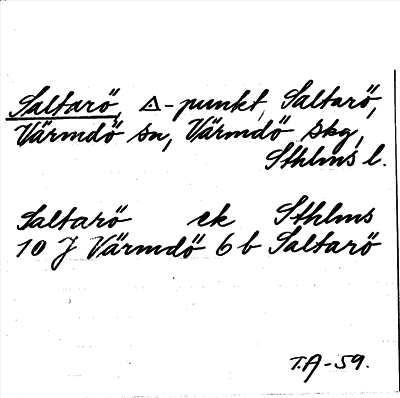 Saltarö, △-punkt, Saltarö,
Värmdö sn, Värmdö skg,
Sthlms l.
Saltarö ek Sthlms
10 J Värmdö 6 b Saltarö
T.A-59.